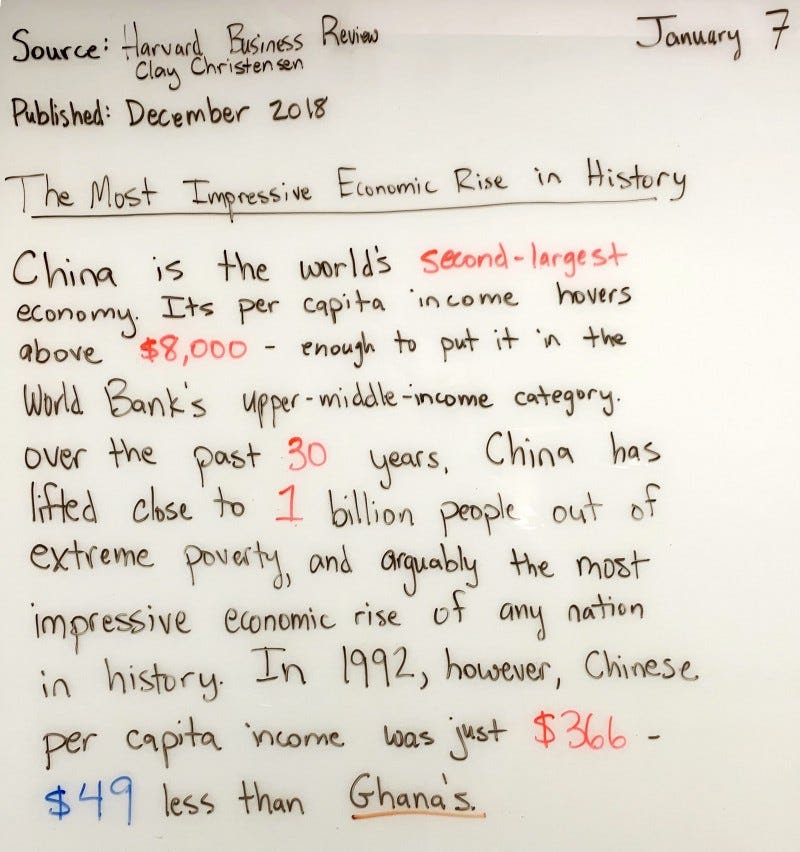 Source: Harvard Business Review
Clay Christensen
January 7
Published: December 2018
The Most Impressive Economic Rise in History
China is the world's second-largest
economy. Its per capita income hovers
above $8,000 - enough to put it in the
World Bank's upper-middle-income category.
over the past 30 years, China has
lifted close to 1 billion people out of
extreme poverty, and arguably the most
impressive economic rise of any nation
in history. In 1992, however, Chinese
per capita income was just $366 -
$49 less than Ghana's.